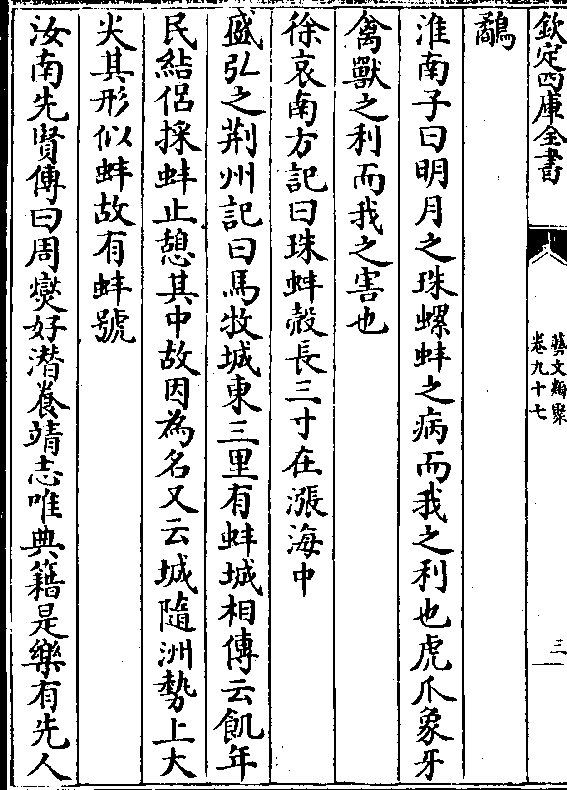 欽定四庫全書
藝文類聚
卷九十七
三
鷸
淮南子曰明月之珠螺蚌之病而我之利也虎爪象牙
禽獸之利而我之害也
徐哀南方記曰珠蚌殼長三寸在漲海中
盛弘之荆州記曰馬牧城東三里有蚌城相傳云飢年
民結侶採蚌止憩其中故因為名又云城隨洲勢上大
尖其形似蚌故有蚌號
汝南先賢傳曰周燮好潛養靖志唯典籍是樂有先人